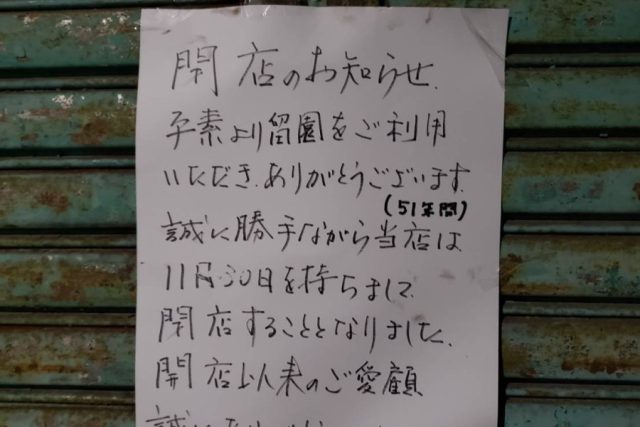 閉店のお知らせ.
平素より留園をご利用
いただき.ありがとうございます.
(51年間)
誠に勝手ながら当店は
11月30日を持ちまして
閉店することとなりました.
開店以来のご愛顧
誠に